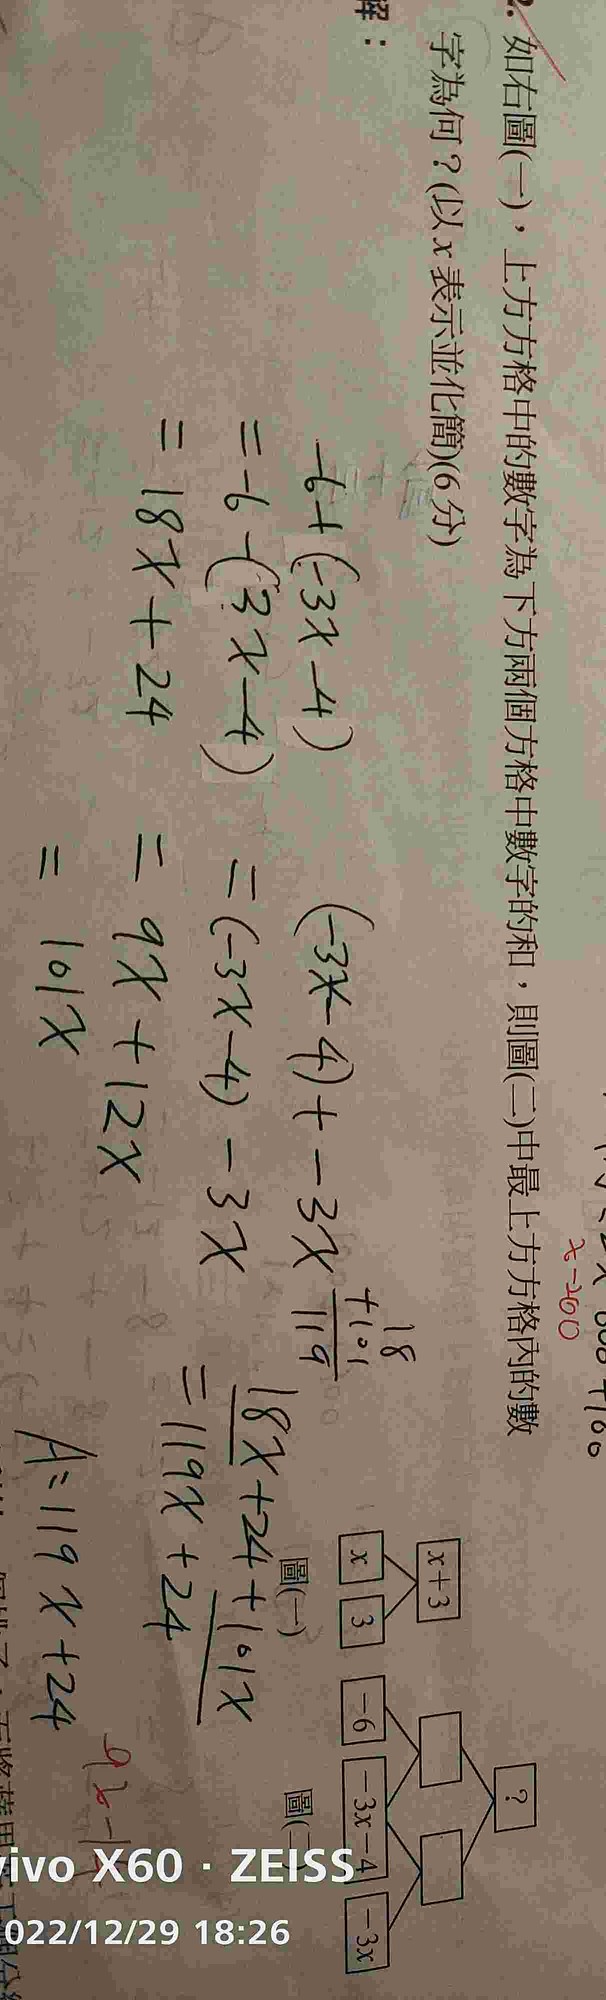 2. 如右圖(一)，上方方格中的數字為下方兩個方格中數字的和，則圖(二)中最上方方格內的數
字為何？(以 x 表示並化簡)(6 分)
解：
x-200
-6+(-3x-4)
=-6-(3x-4)
=18x+24
(-3x-4)+-3x
=(-3x-4)-3x
=9x+12x
=101x
18
+101
119
18x+24+101x
=119x+24
A=119x+24
x+3
x 3
圖(一)
?
-6 -3x-4 -3x
圖(二)
vivo X60 · ZEISS
2022/12/29 18:26